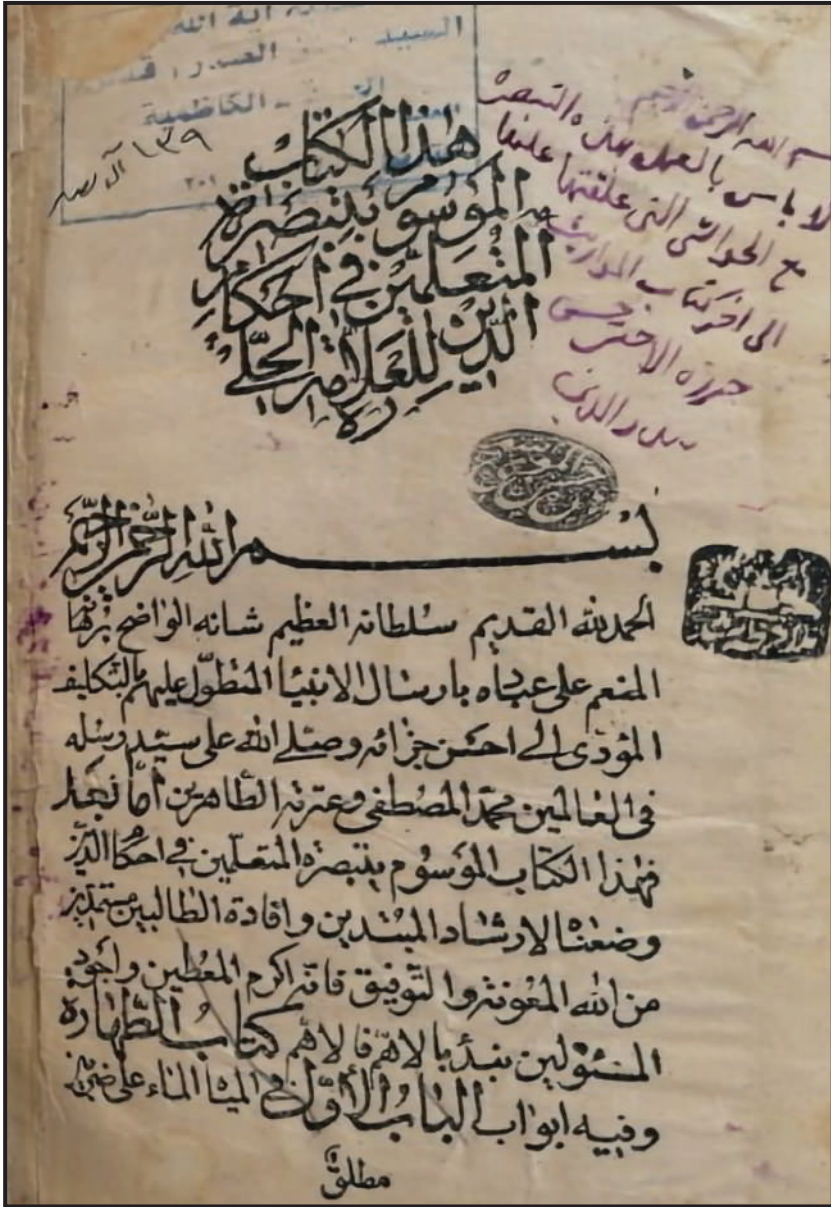 آية الله
السيد الصدر
الكاظمية
١٣٩
٣٠١
بسم الله الرحمن الرحيم
لا باس بالعمل بهذه التبصرة
مع الحواشي التي علقتها عليها
الى اخر كتاب المواريث
حرره الاحقر
صدر الدين
هذا الكتاب
الموسوم بتبصرة
المتعلمين في احكام
الدين للعلامة الحلي
ره
بسم الله الرحمن الرحيم
الحمد لله القديم سلطانه العظيم شانه الواضح برهانه
المنعم على عباده بارسال الانبيا المتطول عليهم بالتكليف
المؤدى الى احسن جزائه وصلى الله على سيد رسله
في العالمين محمد المصطفى وعترته الطاهرين اما بعد
فهذا الكتاب الموسوم بتبصرة المتعلمين في احكام الدين
وضعناه لارشاد المبتدين وافادة الطالبين مستمدين
من الله المعونة والتوفيق فانه اكرم المعطين واجود
المسئولين نبدء بالاهم فالاهم كتاب الطهارة
وفيه ابواب الباب الأول في الميا الماء على ضربين
مطلق